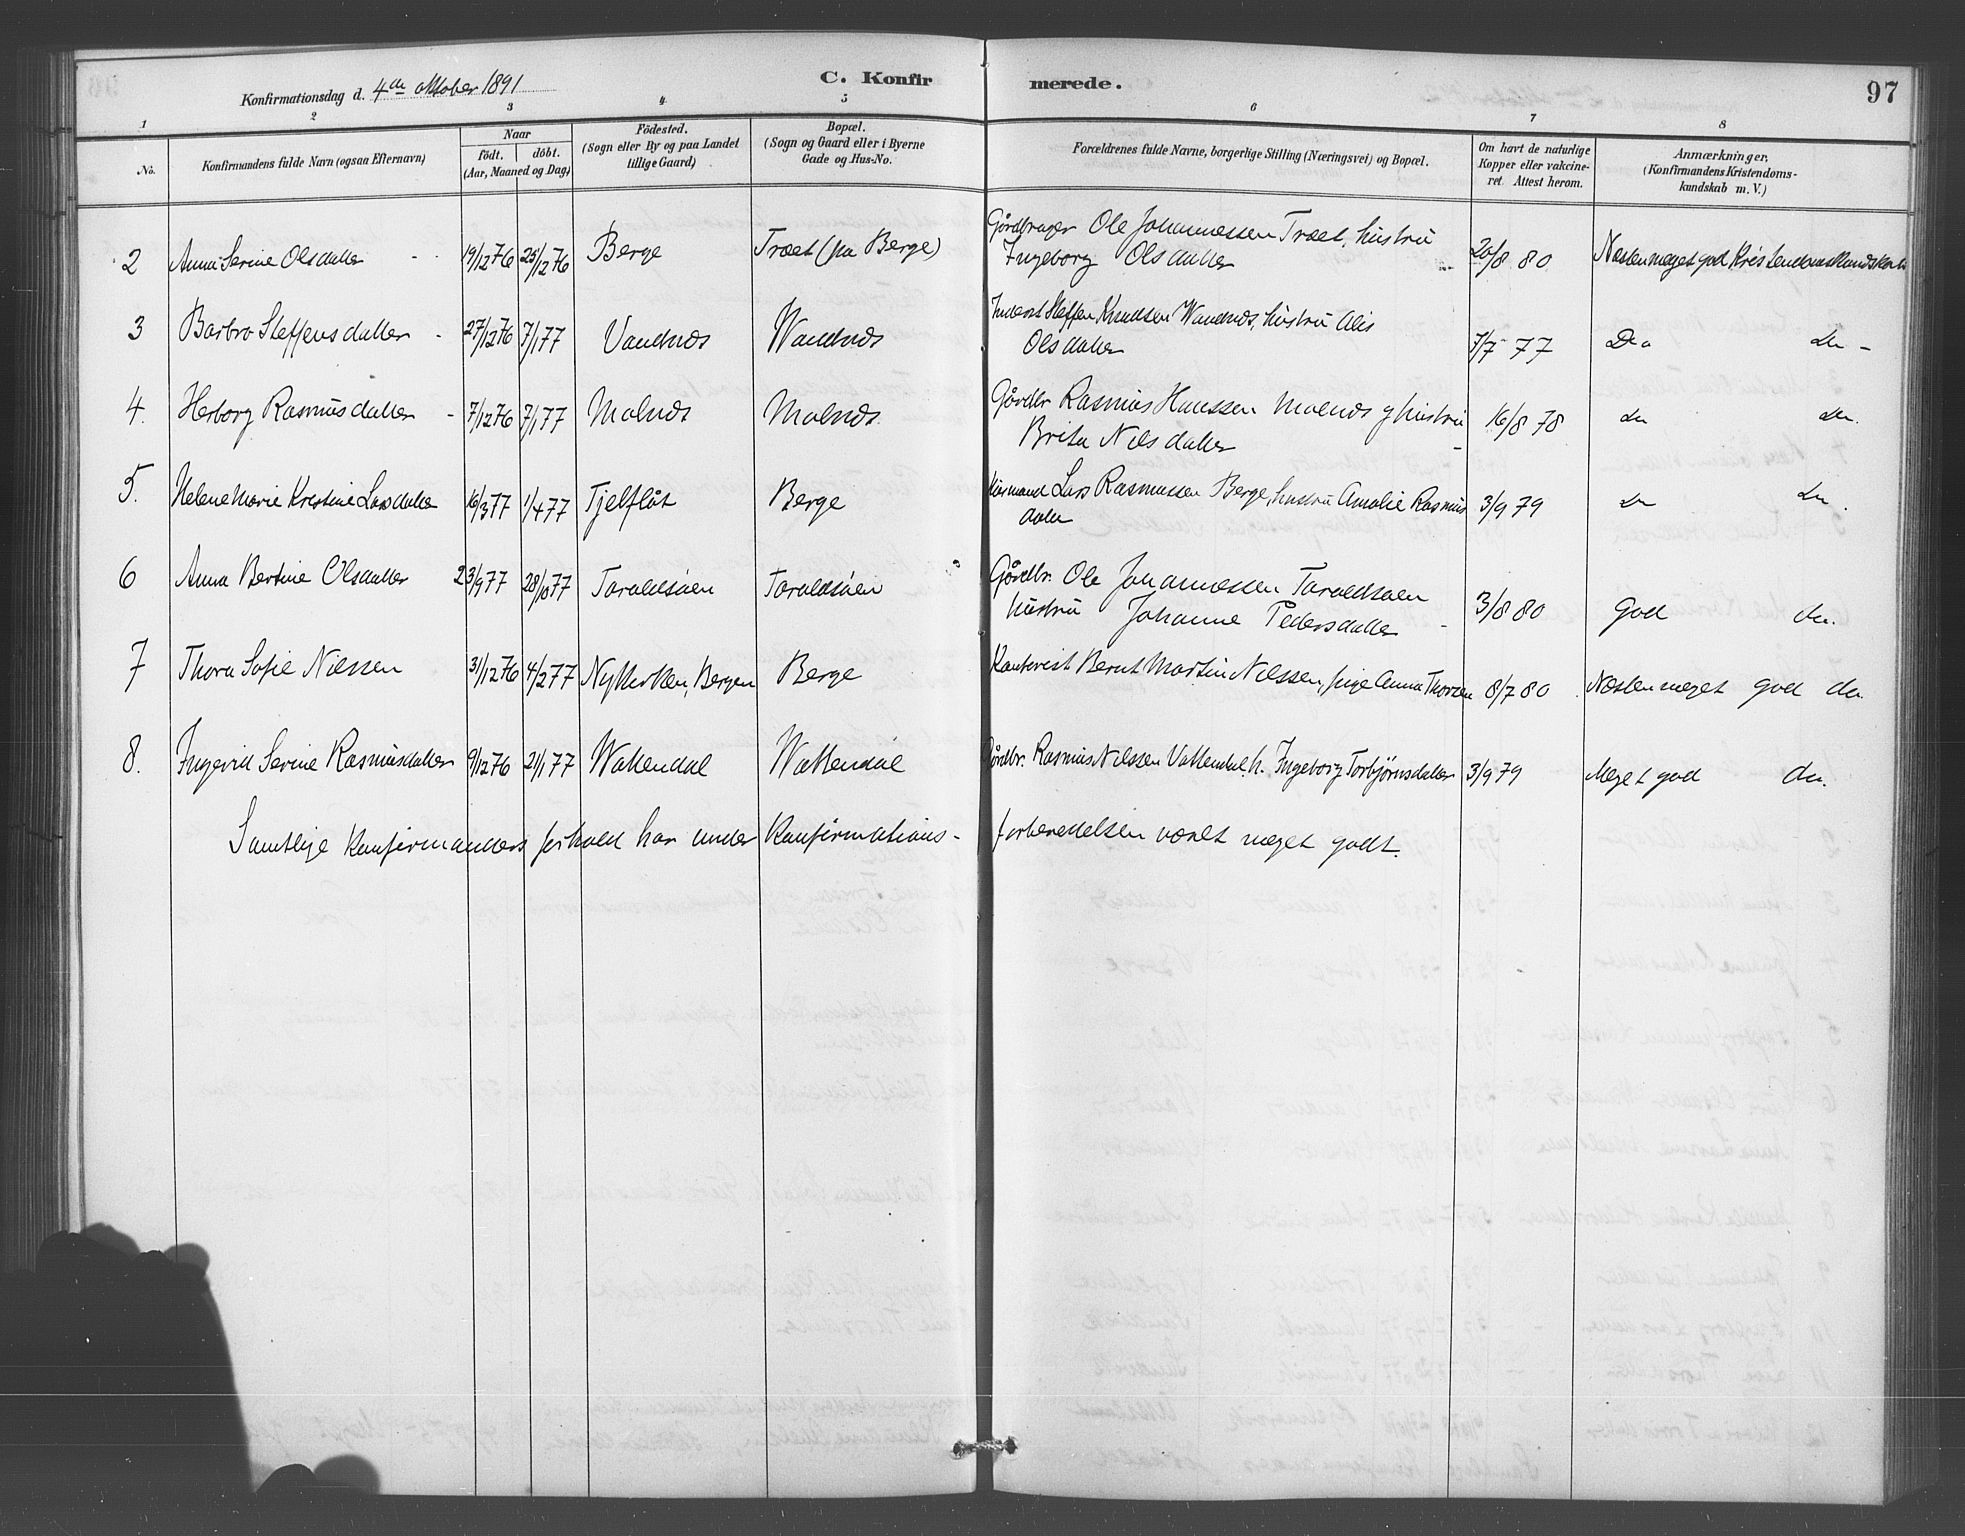 Konfirmationsdag d. 4de oktober 1891 C. Konfir merede. 97
1 2 3 4 5 6 7 8
No. Konfirmandens fulde Navn (ogsaa Efternavn) Naar födt. döbt. (Aar, Maaned og Dag) Födested. (Sogn eller By og paa Landet tillige Gaard) Bopæl. (Sogn og Gaard eller i Byerne Gade og Hus-No. Forældrenes fulde Navne, borgerlige Stilling (Næringsvei) og Bopæl. Om havt de naturlige Kopper eller vakcineret. Attest herom. Anmærkninger. (Konfirmandens Kristendomskundskab m. V.)
2 Anna Serine Olsdatter 19/12 76 25/12 76 Berge Træet (pa Berge) Gårdbruger Ole Johannessen Træet, hustru
Ingeborg Olsdatter 20/8 80 Næsten meget god Kristendomskundskab
3 Barbro Steffensdatter 27/12 76 7/1 77 Vandnæs Wandnæs Inderst Steffen Knudsen Wandnæs, hustru Alis
Olsdatter 7/7 77 Do do
4. Herborg Rasmusdatter 7/12 76 7/1 77 Molnæs Molnæs. Gårdbr Rasmus Hanssen Molnæs og hustru
Brita Nilsdatter 16/8 78 do do.
5. Helene Marie Kristine Larsdatter 16/3 77 1/4 77 Tjelflåt Berge Lars Rasmussen Berge, hustru Amalie Rasmus
datter 3/9 79 do do.
6 Anna Bertine Olsdatter 23/9 77 28/10 77 Taraldsøen Taraldsøen Gårdbr. Ole Johannessen Taraldsøen
hustru Johanne Pedersdatter 3/8 80 God do.
7 Thora Sofie Nilssen 31/12 76 4/2 77 Nykirken, Bergen Berge Kontorist Bernt Martin Nilssen, pige Anna Thorsen 8/7 80 Næsten meget god do.
8. Ingerid Serine Rasmusdatter 9/12 76 21/1 77 Wattendal Wattendal Gårdbr. Rasmus Nilssen Vattendal, h. Ingeborg Torbjørnsdatter 3/9 79 Meget god do.
Samtlige Konfirmanders forhold har under Konfirmations- forberedelsen været meget godt.